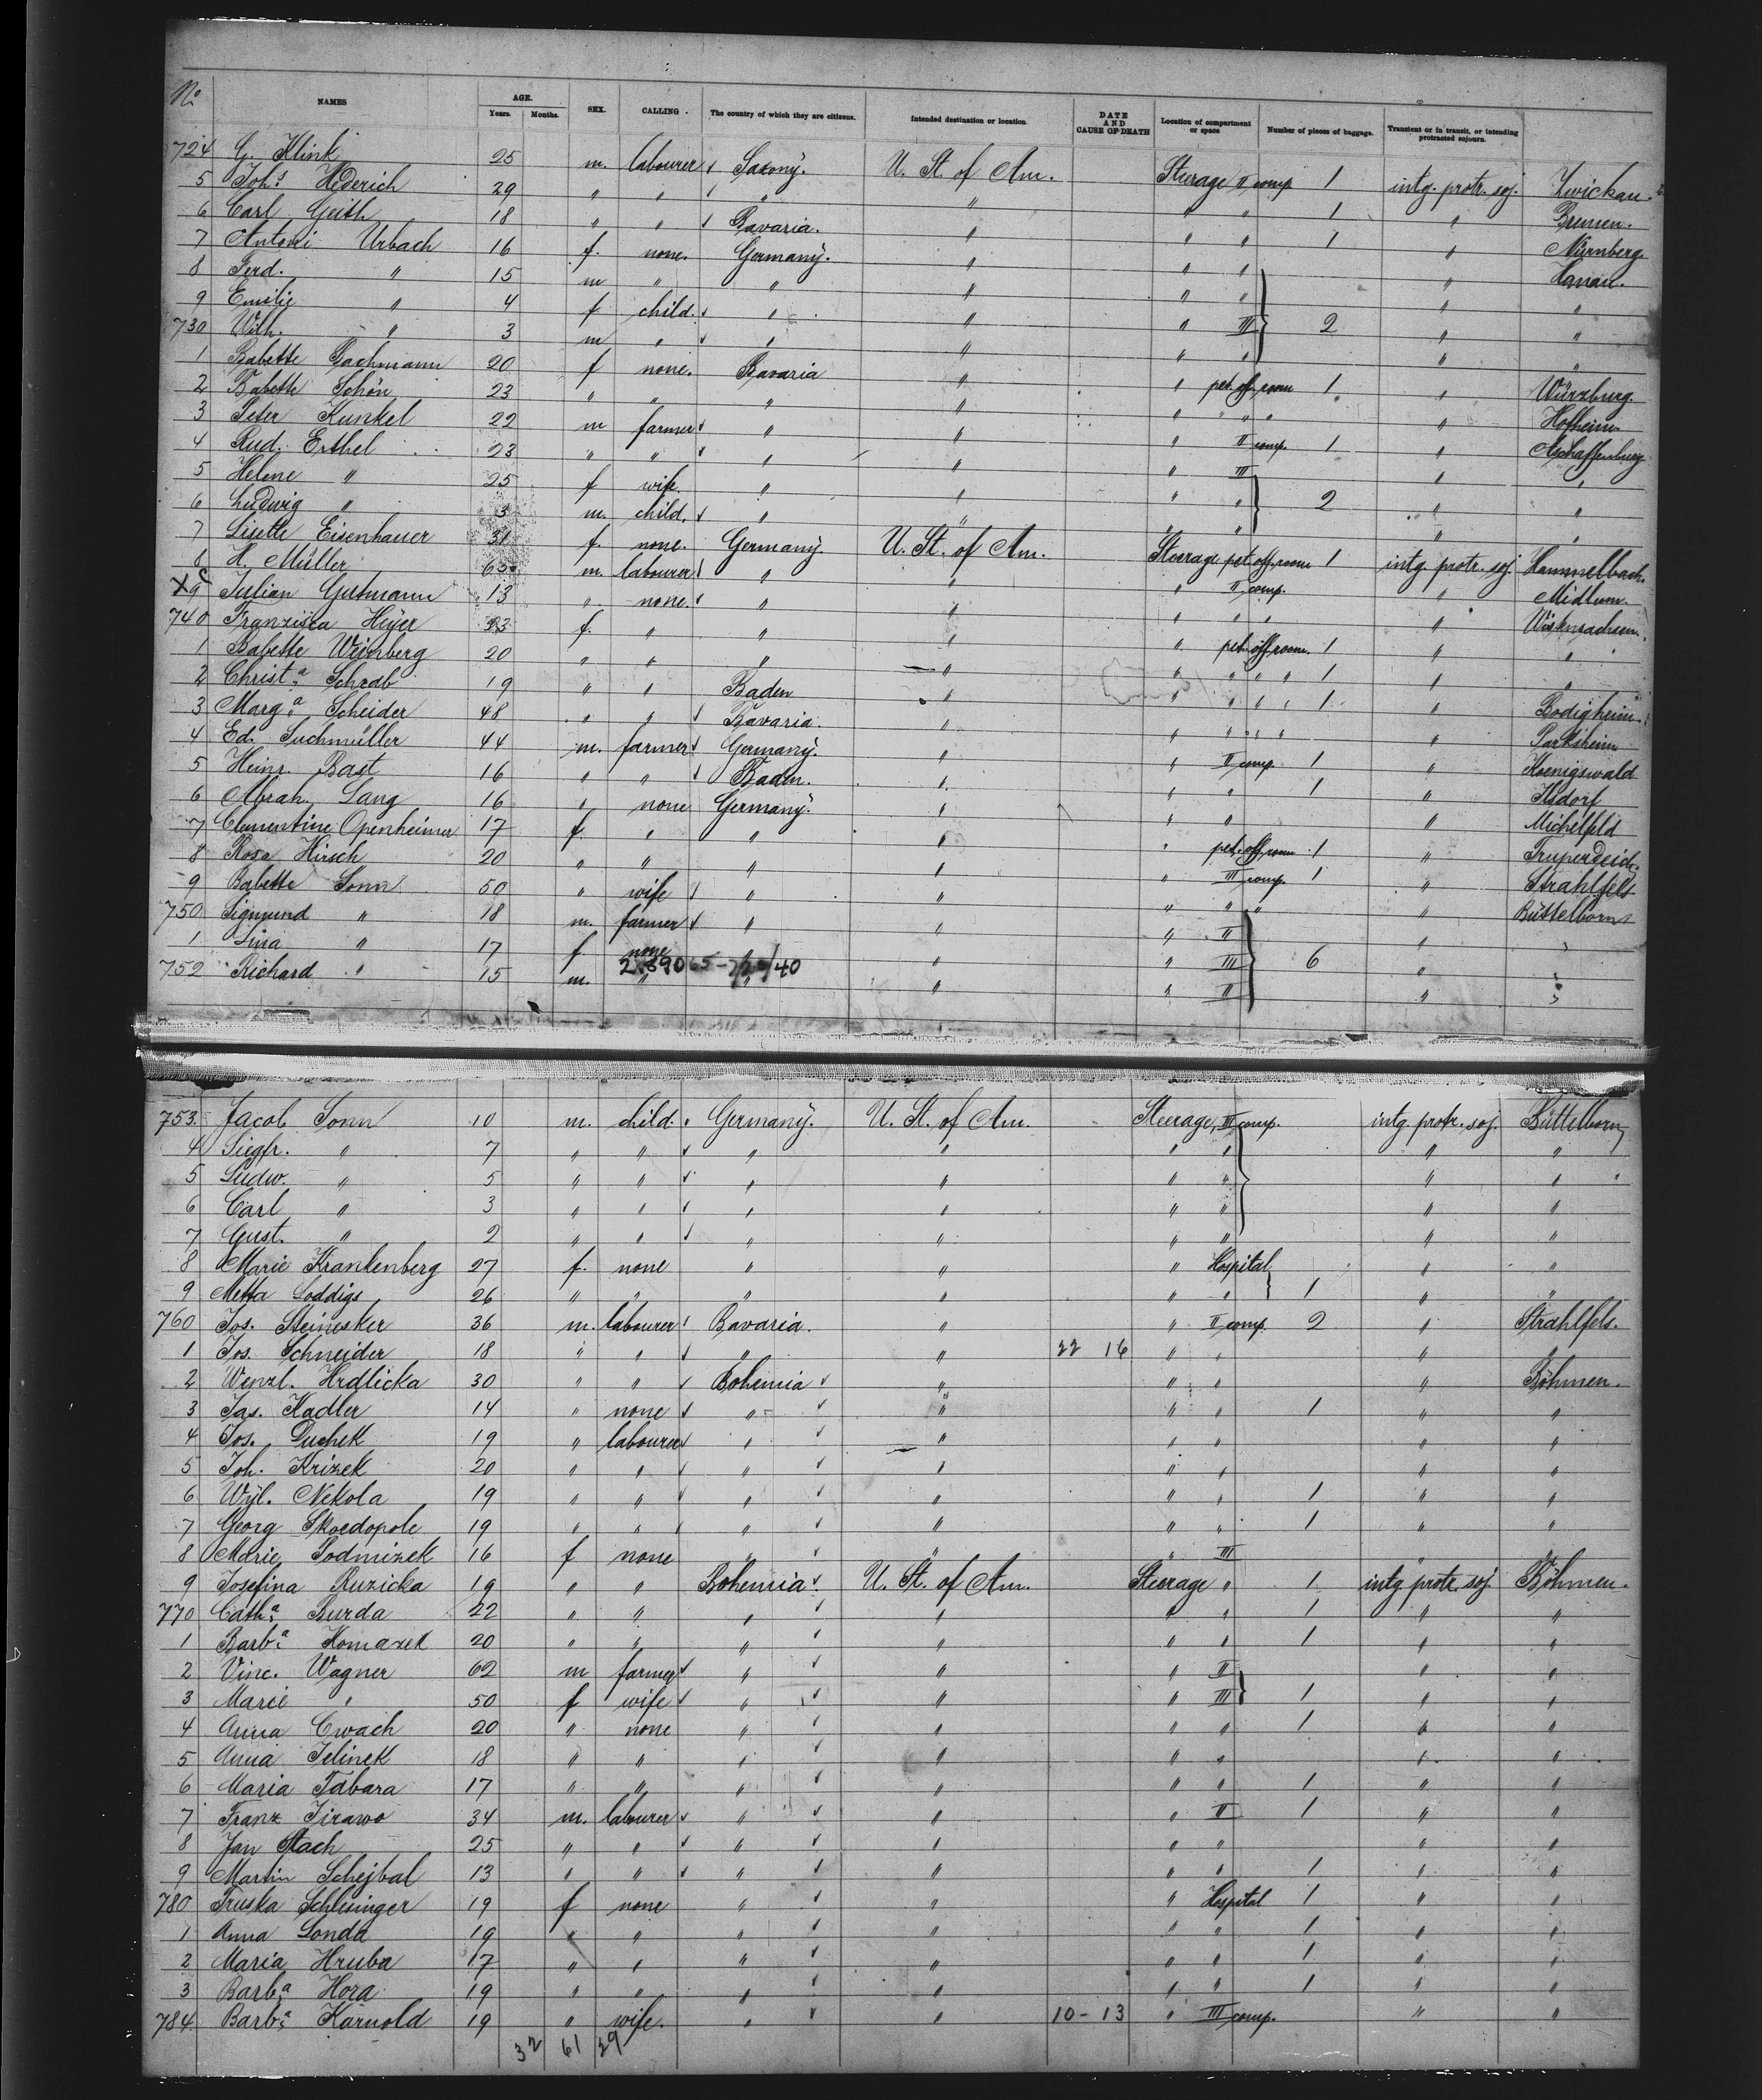 No NAMES AGE. Years. Months. SEX. CALLING. The country of which they are citizens. Intended destination or location. DATE AND CAUSE OF DEATH Location of compartment or space Number of pieces of baggage. Transient or in transit, or intending protracted sojourn.
724 G. Klink 25 m. labourer Saxony. U. St. of Am. Steerage II comp. 1 intg. protr. soj. Zwickau
5 Johs. Hederich 29 " " " " " " 1 " Bremen.
6 Carl Geith 18 " " Bavaria. " " " 1 " Nürnberg.
7 Antoni Urbach 16 f. none. Germany. " " " " Hanau.
8 Ferd. " 15 m " " " " " " "
9 Emilie " 4 f child. " " " III 2 " "
730 Wilh. " 3 m " " " " " " "
1 Babette Bachmann 20 f none. Bavaria " " pet. off. room 1 " Würzburg.
2 Babette Schön 23 " " " " " " " " " Hofheim
3 Peter Kunkel 22 m farmer " " " II comp. 1 " Aschaffenburg
4 Rud. Erthel 23 " " " " " III " "
5 Helene " 25 f wife. " " " " 2 " "
6 Ludwig " 3 m. child. " " " " " "
7 Lisette Eisenhauer 31 f. none. Germany. U. St. of Am. Steerage pet. off. room 1 intg. protr. soj. Hammelbach.
8 H. Müller 63 m. labourer " " " II comp. " Midlum.
X 9 Julian Gutmann 13 " none. " " " " " "
740 Franzisca Heyer 23 f. " " " " pet. off. room. 1 " "
1 Babette Weinberg 20 " " " " " " " " 1 " "
2 Christa. Schrab 19 " " Baden " " " " " 1 " Bodigheim
3 Marga. Scheider 48 " " Bavaria. " " " " " "
4 Ed. Suchmüller 44 m. farmer Germany. " " II comp. 1 " Koenigswald
5 Heinr. Bast 16 " " Baden. " " " 1 "
6 Abrah. Lang 16 " none Germany. " " " " Michelfeld
7 Clementine Openheimer 17 f. " " " " pet. off. room 1 "
8 Rosa Hirsch 20 " " " " " III comp. 1 " Strahlfels
9 Babette Sonn 50 " wife " " " " " " Büttelborn
750 Sigmund " 18 m. farmer " " " II " "
1 Lina " 17 f none " " " III 6 " "
752 Richard " 15 m. " " " " II " "
753. Jacob Sonn 10 m. child. Germany. U. St. of Am. Steerage, II comp. intg. protr. soj. Büttelborn
4 Siegfr. " 7 " " " " " " " "
5 Ludw. " 5 " " " " " " " "
6 Carl " 3 " " " " " " " "
7 Gust. " 2 " " " " " " " "
8 Marie Krankenberg 27 f. none " " " Hospital " "
9 Metta Loddigs 26 " " " " " " 1 " "
760 Jos. Steinesker 36 m. labourer Bavaria. " " II comp. 2 " Strahlfels.
1 Jos. Schneider 18 " " " " 22 16 " " " "
2 Wenzl. Hrdlicka 30 " " Bohemia " " " " Böhmen.
3 Jas. Kadler 14 " none " " " " 1 " "
4 Jos. Duchek 19 " labourer " " " " " "
5 Joh. Krizek 20 " " " " " " " "
6 Wyl. Nekola 19 " " " " " " 1 " "
7 Georg Skoedopole 19 " " " " " " 1 " "
8 Marie Podmizek 16 f none " " " III " "
9 Josefina Ruzicka 19 " " Bohemia U. St. of Am. Steerage " 1 intg protr. soj. Böhmen.
770 Catha. Burda 22 " " " " " " 1 " "
1 Barba. Komazek 20 " " " " " " 1 " "
2 Vinc. Wagner 62 m farmer " " " II " "
3 Marie " 50 f wife " " " III 1 " "
4 Anna Cwach 20 " none " " " " 1 " "
5 Anna Jelinek 18 " " " " " " " "
6 Maria Tabara 17 " " " " " " 1 " "
7 Franz Jirawo 34 m. labourer " " " II 1 " "
8 Jan Stach 25 " " " " " " " "
9 Martin Schejbal 13 " " " " " " 1 " "
780 Truska Schlesinger 19 f none " " " Hospital 1 " "
1 Anna Londa 19 " " " " " " 1 " "
2 Maria Hruba 17 " " " " " " 1 " "
3 Barba. Hora 19 " " " " " " 1 " "
784. Barba. Karnold 19 " wife. " " 10-13 " III comp. " "
32 61 29